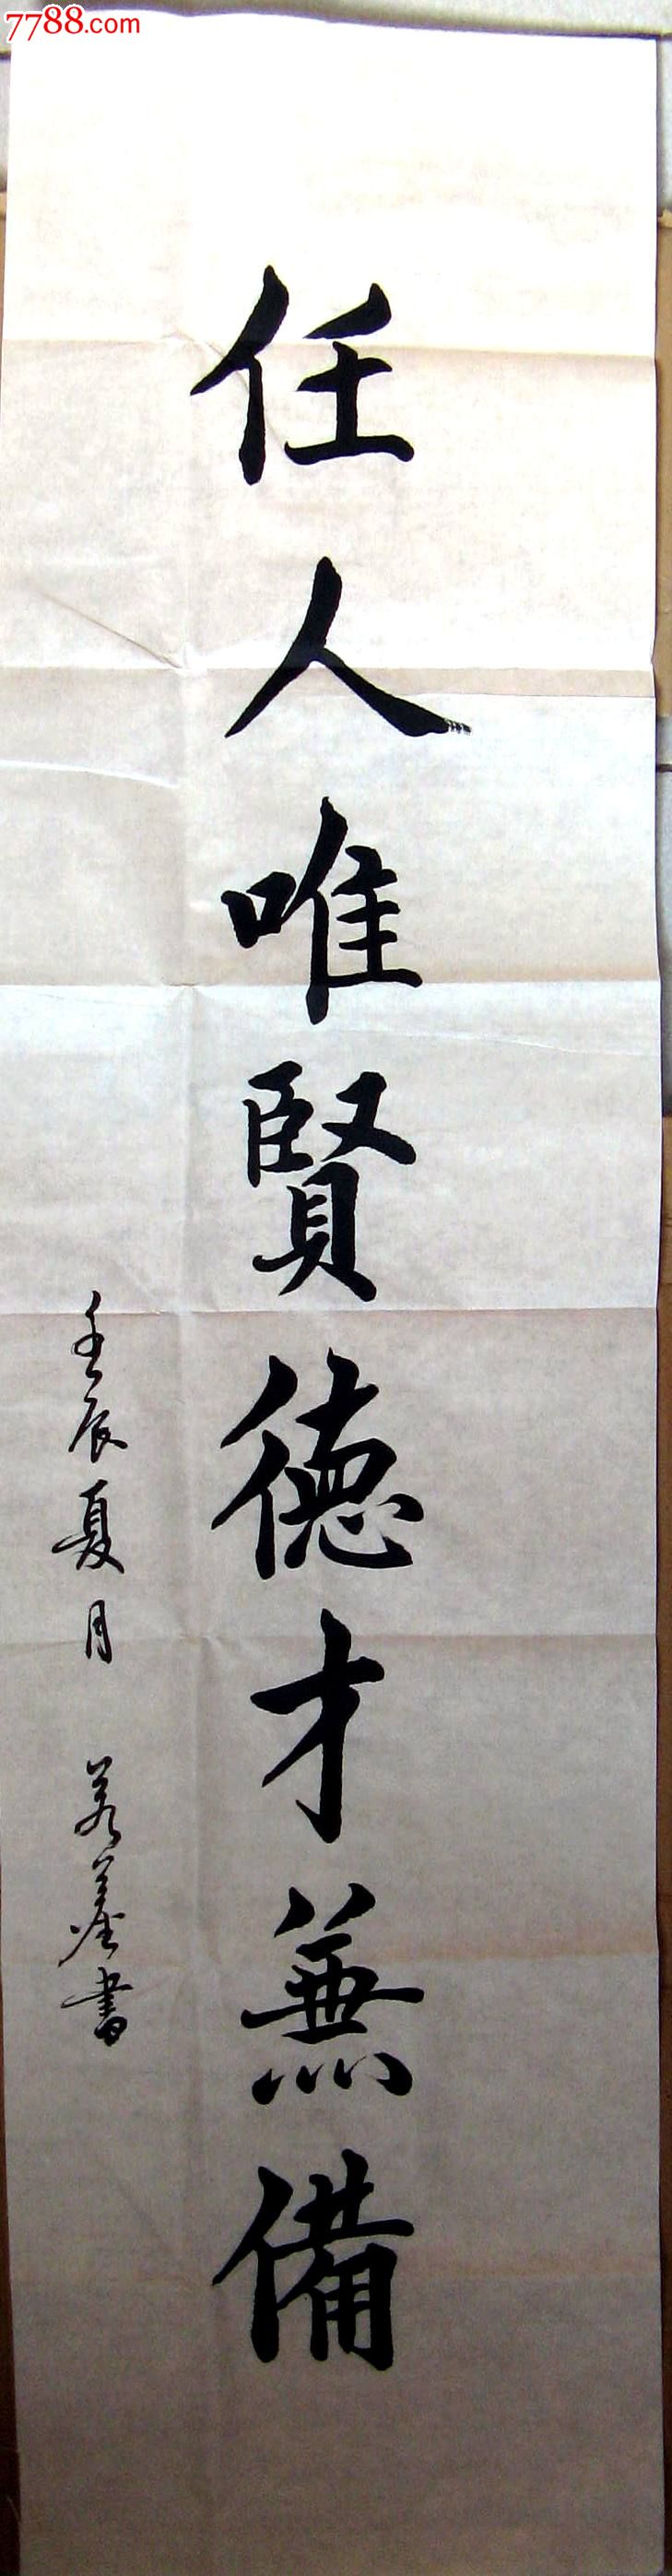 7788.com
任人唯賢德才兼備
壬辰夏月 若
書